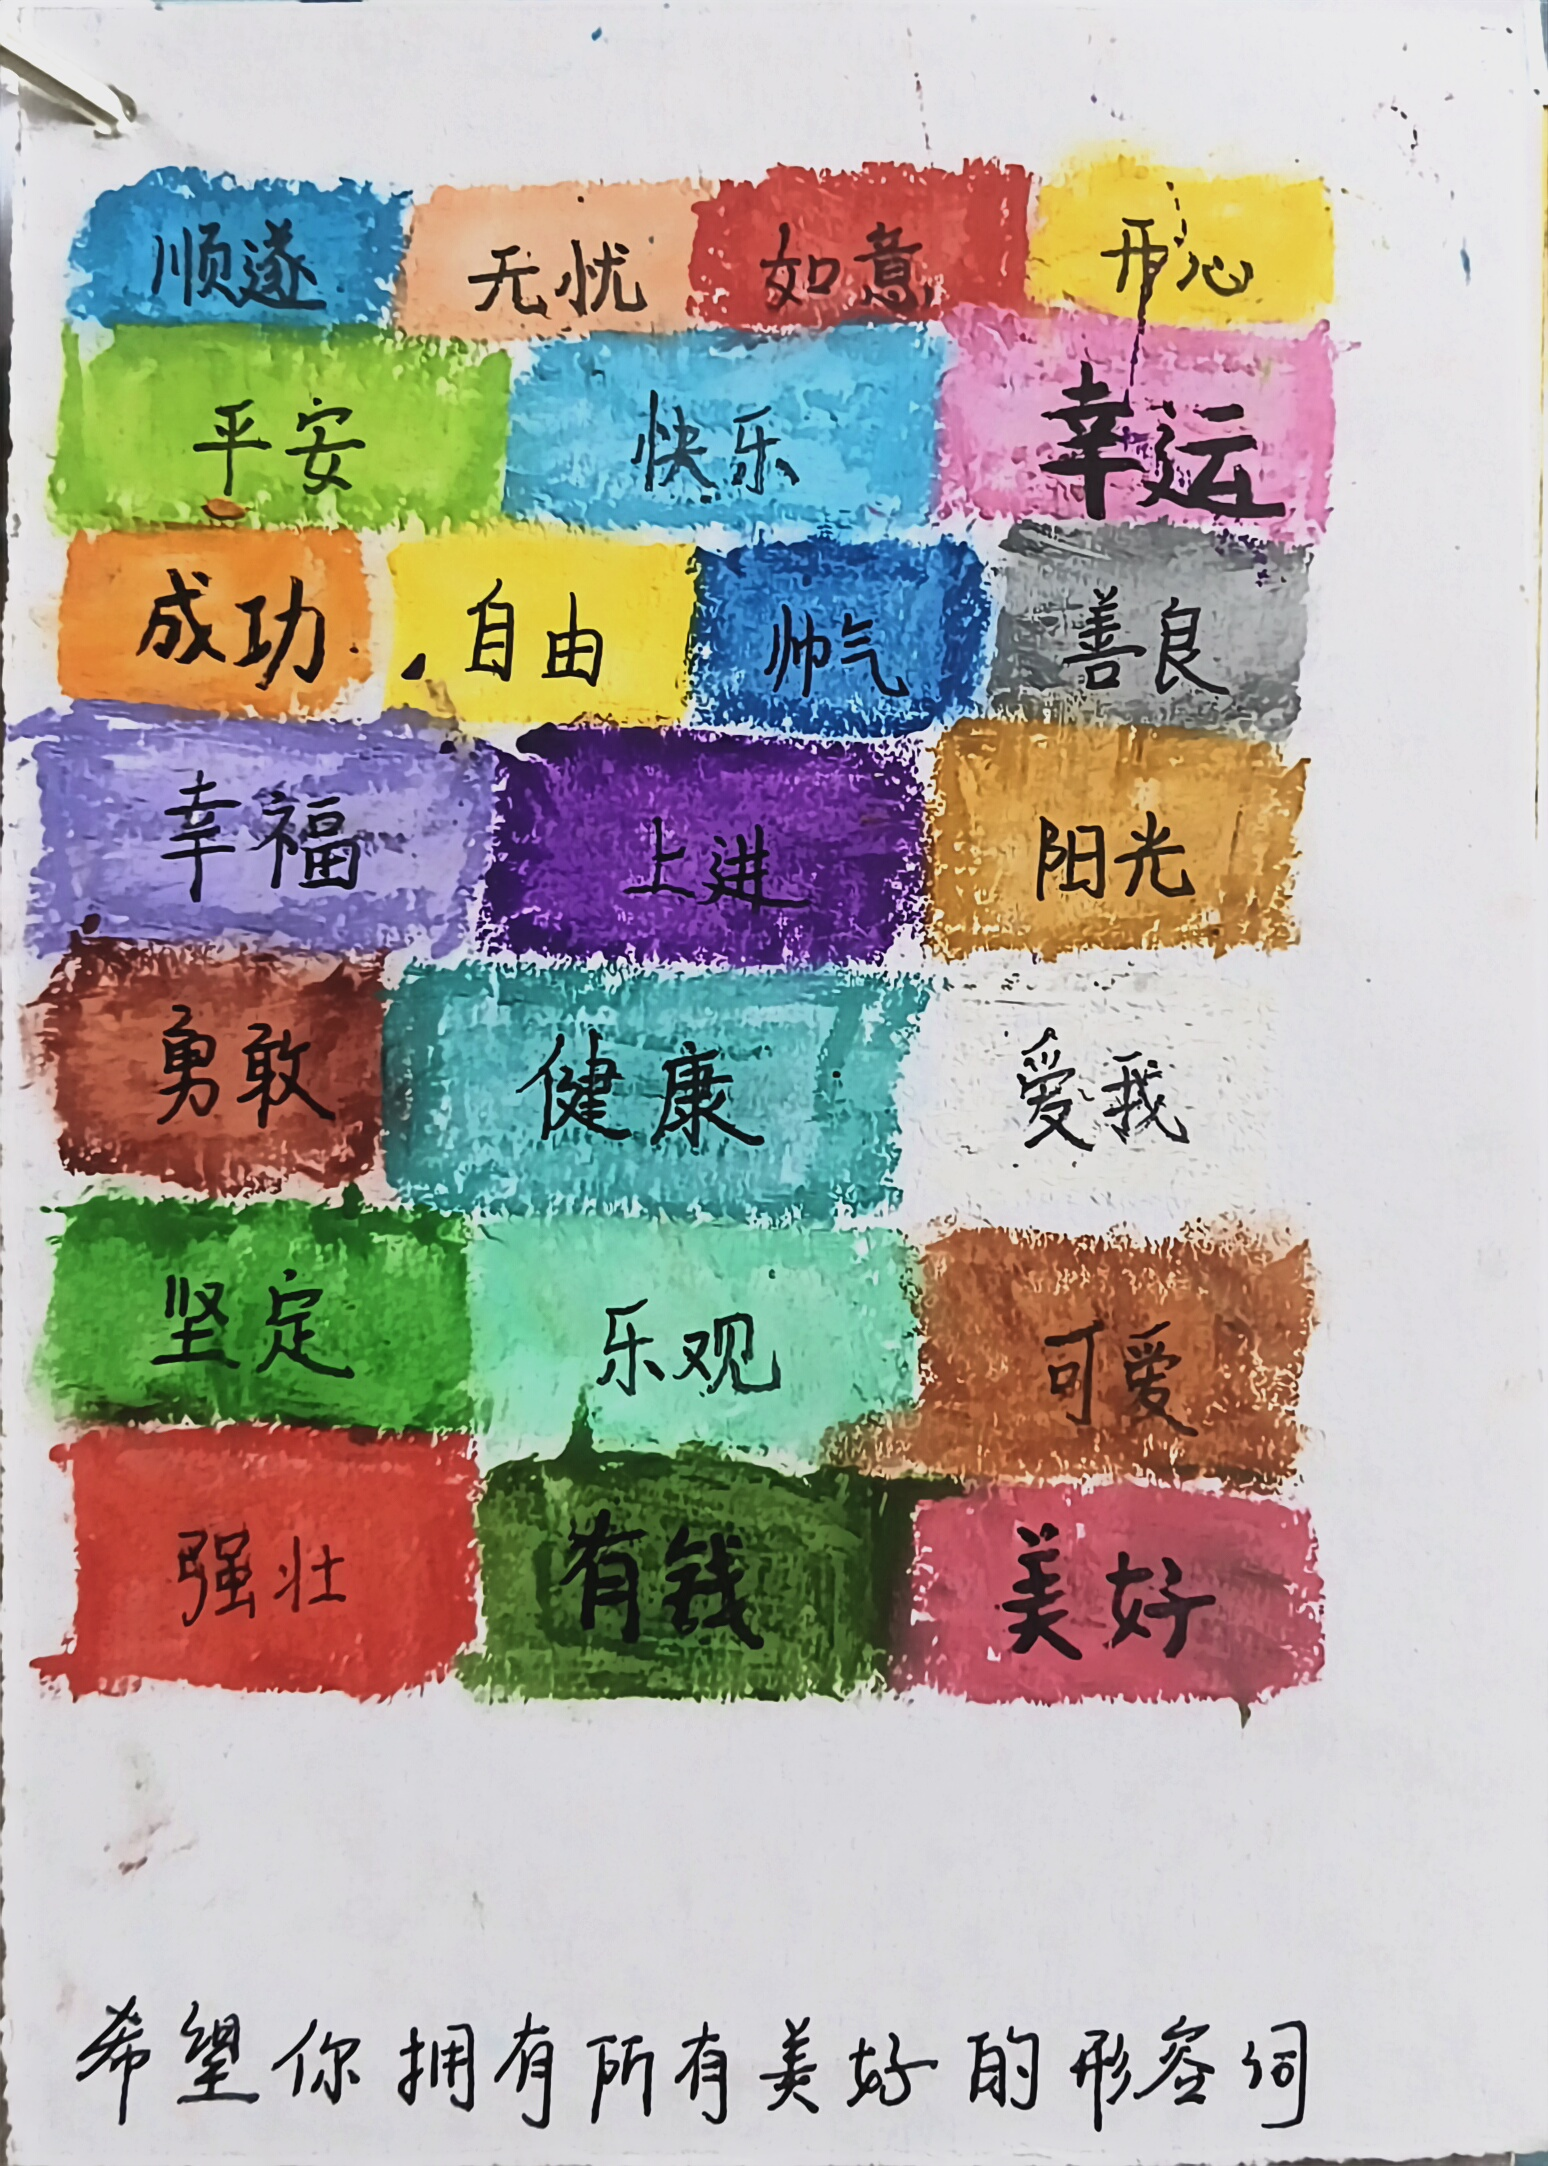 顺遂 无忧 如意 开心
平安 快乐 幸运
成功 自由 帅气 善良
幸福 上进 阳光
勇敢 健康 爱我
坚定 乐观 可爱
强壮 有钱 美好
希望你拥有所有美好的形容词